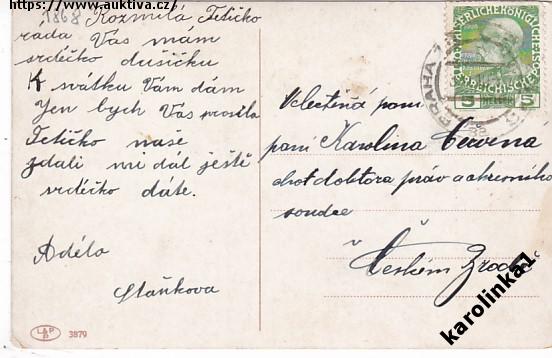 https://www.auktiva.cz/
1868 Rozmilá Tetičko
ráda Vás mám
srdéčko dušičku
K svátku Vám dám
Jen bych Vás prosila
Tetičko naše
zdali mi dál ještě
srdéčko dáte.
Adéla
Staňkova
KAISERLICHE KÖNIGLICHE
5 HELLER 5
PRAHA
Velectěná paní
paní Karolina Červena
chot doktora práv a okresního
soudce
v
Českém Brodě
L&P
3879
karolinka1